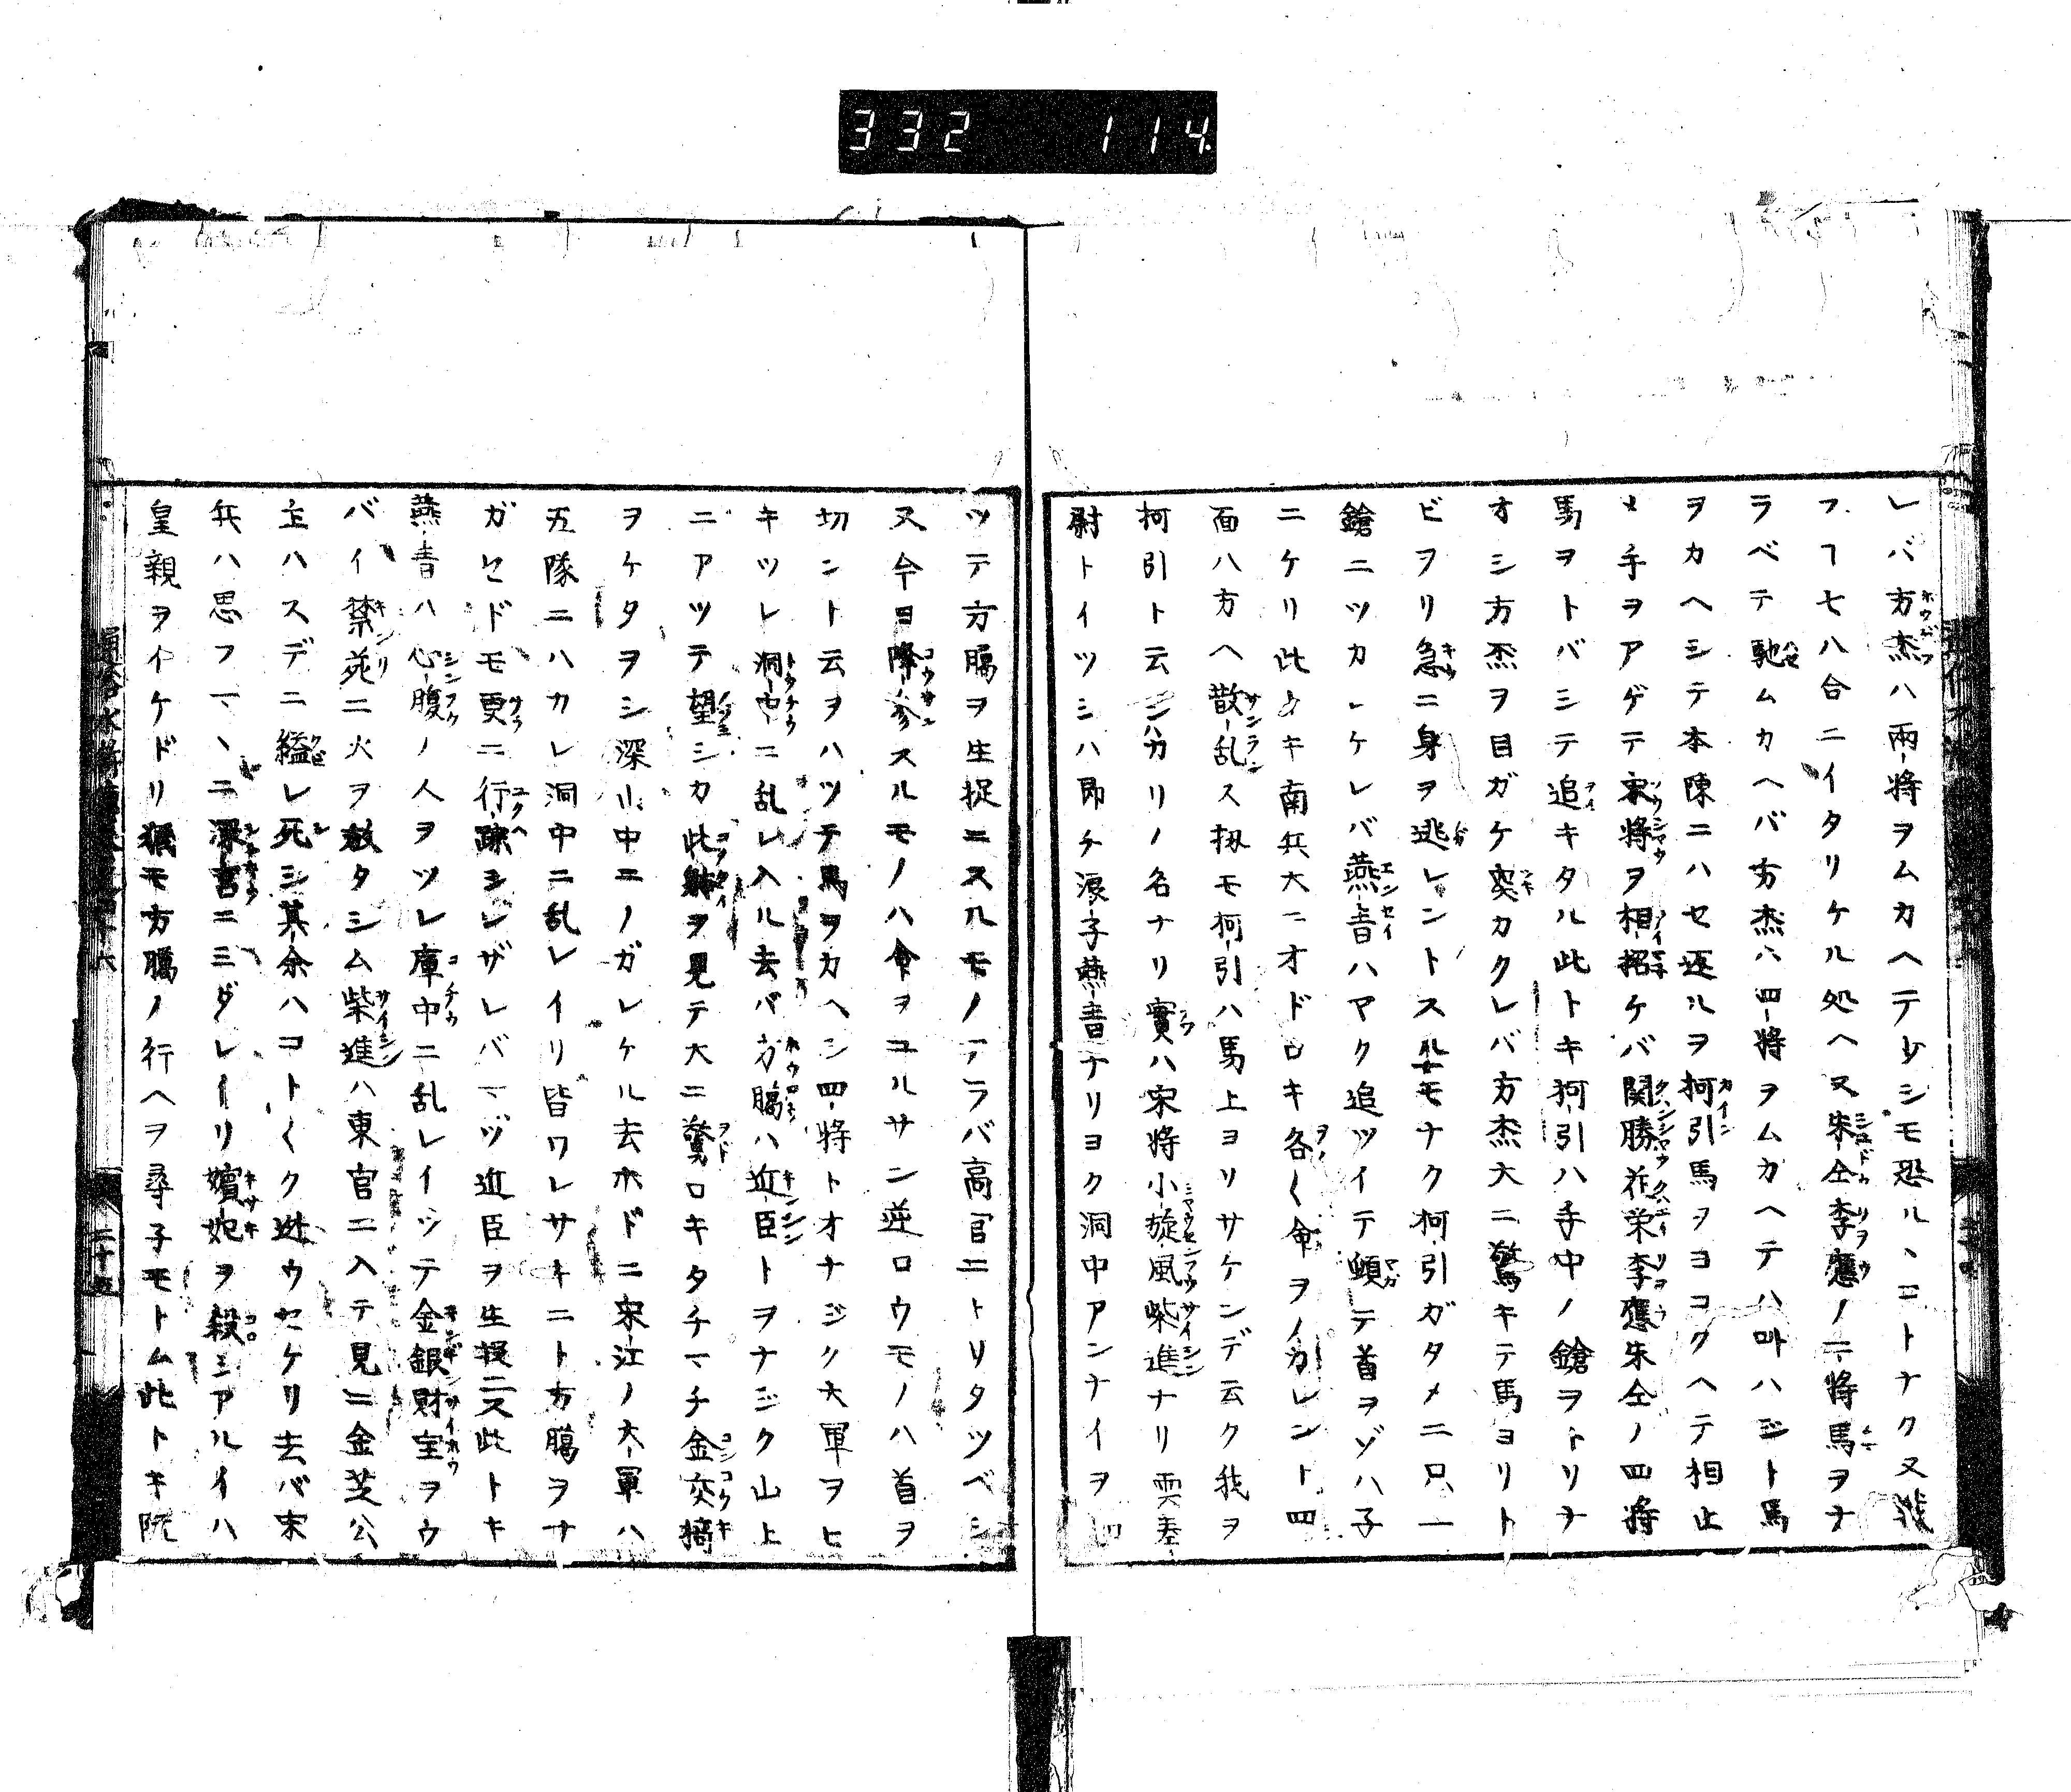 332 114
レバ方杰ハ兩将ヲムカヘテ少シモ恐ルヽコトナク又戦
フヿ七八合ニイタリケル処ヘ又朱仝李應ノ二将馬ヲナ
ラベテ馳ムカヘバ方杰ハ四将ヲムカヘテハ叶ハジト馬
ヲカヘシテ本陳ニハセ返ルヲ柯引馬ヲヨコタヘテ相止
メ手ヲアゲテ宋将ヲ相招ケバ関勝花栄李應朱仝ノ四将
馬ヲトバシテ追キタル此トキ柯引ハ手中ノ鎗ヲトリナ
オシ方杰ヲ目ガケ突カクレバ方杰大ニ驚キテ馬ヨリト
ビヲリ急ニ身ヲ逃レントス モナク柯引ガタメニ只一
鎗ニツカレケレバ燕青ハヤク追ツイテ 首ヲゾハ子
ニケリ此トキ南兵大ニオドロキ各〱命ヲノカレント四
面八方ヘ散乱ス扨モ柯引ハ馬上ヨリサケンデ云ク我ヲ
柯引ト云シハカリノ名ナリ實ハ宋将小旋風柴進ナリ雲奉
尉トイツシハ即チ浪子燕青ナリヨク洞中アンナイヲ
ツテ方臈ヲ生捉ニスルモノアラバ高官ニトリタツベシ
又今ヨ降参スルモノハ命ヲユルサン逆ロウモノハ首ヲ
切ント云ヲハツテ馬ヲカヘシ四将トオナジク大軍ヲヒ
キツレ洞中ニ乱レ入ル去バ方臈ハ近臣トヲナジク山上
ニアツテ望シカ此躰ヲ見テ大ニ驚ロキタチマチ金交椅
ヲケタヲシ深山中エノガレケル去ホドニ宋江ノ大軍ハ
五隊ニハカレ洞中ニ乱レイリ皆ワレサキニト方臈ヲナ
ガセドモ更ニ行 シレザレバマヅ近臣ヲ生捉ニス此トキ
燕青ハ心腹ノ人ヲツレ庫中ニ乱レイツテ金銀財宝ヲウ
バイ禁苑ニ火ヲ放タシム柴進ハ東宮ニ入テ見ニ金芝公
主ハスデニ縊レ死シ其余ハコト〱ク迯ウセケリ去バ宋
兵ハ思フマヽニ深宮ニミダレイリ嬪妃ヲ殺シアルイハ
皇親ヲイケドリ猶モ方臈ノ行ヘヲ尋子モトム此トキ阮
二十五